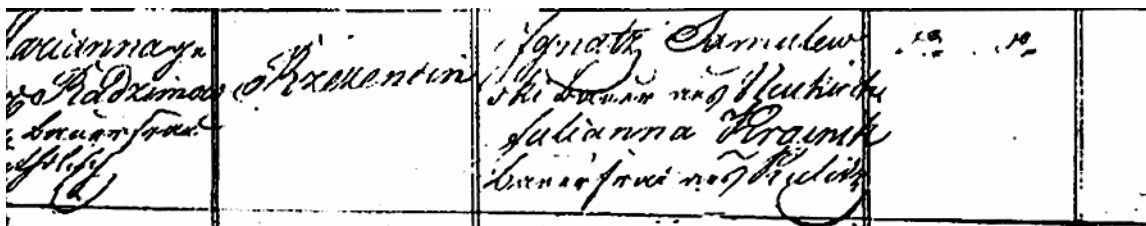 Marianna ge
Radzimow
Bauerfrau
Rzezencin
Ignatz Samulew
ski Bauer aus Neukirch
Julianna Krainik
Bauerfrau aus Kulitz